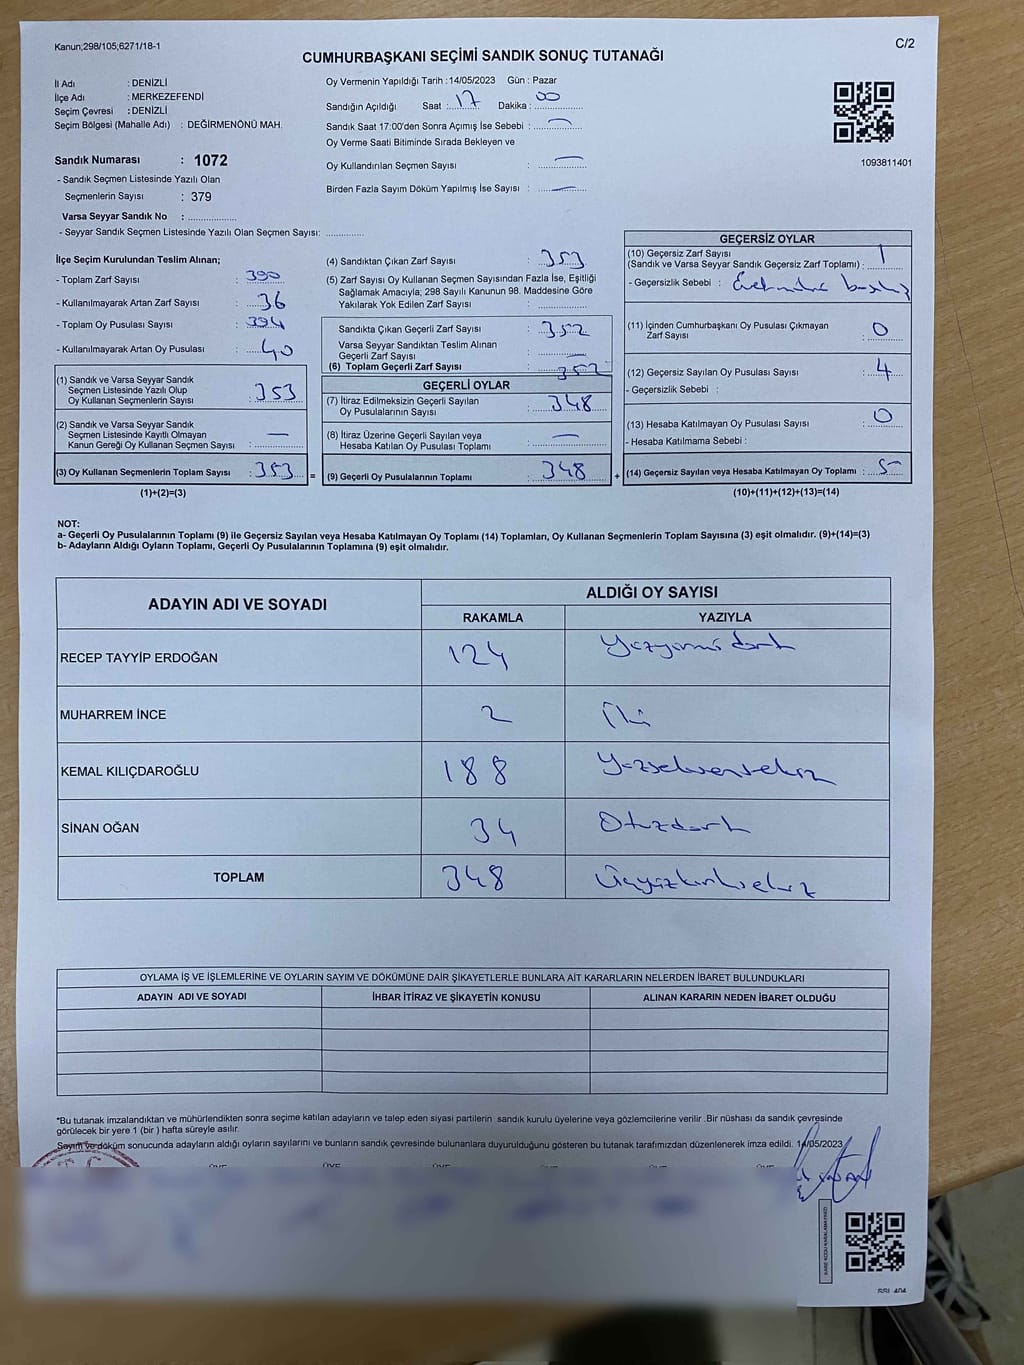 Kanun;298/105;6271/18-1
C/2
CUMHURBAŞKANI SEÇİMİ SANDIK SONUÇ TUTANAĞI
İl Adı : DENİZLİ
İlçe Adı : MERKEZEFENDİ
Seçim Çevresi : DENİZLİ
Seçim Bölgesi (Mahalle Adı) : DEĞİRMENÖNÜ MAH.
Sandık Numarası : 1072
- Sandık Seçmen Listesinde Yazılı Olan
Seçmenlerin Sayısı : 379
Varsa Seyyar Sandık No :
- Seyyar Sandık Seçmen Listesinde Yazılı Olan Seçmen Sayısı:
Oy Vermenin Yapıldığı Tarih :14/05/2023 Gün : Pazar
Sandığın Açıldığı Saat : 17 Dakika : 00
Sandık Saat 17:00'den Sonra Açımış İse Sebebi : —
Oy Verme Saati Bitiminde Sırada Bekleyen ve
Oy Kullandırılan Seçmen Sayısı : —
Birden Fazla Sayım Döküm Yapılmış İse Sayısı : —
1093811401
İlçe Seçim Kurulundan Teslim Alınan;
- Toplam Zarf Sayısı : 390
- Kullanılmayarak Artan Zarf Sayısı : 36
- Toplam Oy Pusulası Sayısı : 394
- Kullanılmayarak Artan Oy Pusulası : 40
(1) Sandık ve Varsa Seyyar Sandık
Seçmen Listesinde Yazılı Olup
Oy Kullanan Seçmenlerin Sayısı : 353
(2) Sandık ve Varsa Seyyar Sandık
Seçmen Listesinde Kayıtlı Olmayan
Kanun Gereği Oy Kullanan Seçmen Sayısı : —
(3) Oy Kullanan Seçmenlerin Toplam Sayısı : 353
(1)+(2)=(3)
(4) Sandıktan Çıkan Zarf Sayısı : 353
(5) Zarf Sayısı Oy Kullanan Seçmen Sayısından Fazla İse, Eşitliği
Sağlamak Amacıyla; 298 Sayılı Kanunun 98. Maddesine Göre
Yakılarak Yok Edilen Zarf Sayısı :
Sandıkta Çıkan Geçerli Zarf Sayısı : 352
Varsa Seyyar Sandıktan Teslim Alınan
Geçerli Zarf Sayısı : —
(6) Toplam Geçerli Zarf Sayısı : 352
GEÇERLİ OYLAR
(7) İtiraz Edilmeksizin Geçerli Sayılan
Oy Pusulalarının Sayısı : 348
(8) İtiraz Üzerine Geçerli Sayılan veya
Hesaba Katılan Oy Pusulası Toplamı : —
= (9) Geçerli Oy Pusulalarının Toplamı : 348
GEÇERSİZ OYLAR
(10) Geçersiz Zarf Sayısı
(Sandık ve Varsa Seyyar Sandık Geçersiz Zarf Toplamı) : 1
- Geçersizlik Sebebi :
(11) İçinden Cumhurbaşkanı Oy Pusulası Çıkmayan
Zarf Sayısı : 0
(12) Geçersiz Sayılan Oy Pusulası Sayısı : 4
- Geçersizlik Sebebi :
(13) Hesaba Katılmayan Oy Pusulası Sayısı : 0
- Hesaba Katılmama Sebebi :
+ (14) Geçersiz Sayılan veya Hesaba Katılmayan Oy Toplamı : 5
(10)+(11)+(12)+(13)=(14)
NOT:
a- Geçerli Oy Pusulalarının Toplamı (9) ile Geçersiz Sayılan veya Hesaba Katılmayan Oy Toplamı (14) Toplamları, Oy Kullanan Seçmenlerin Toplam Sayısına (3) eşit olmalıdır. (9)+(14)=(3)
b- Adayların Aldığı Oyların Toplamı, Geçerli Oy Pusulalarının Toplamına (9) eşit olmalıdır.
ADAYIN ADI VE SOYADI
ALDIĞI OY SAYISI
RAKAMLA YAZIYLA
RECEP TAYYİP ERDOĞAN 124 Yüzyirmi dört
MUHARREM İNCE 2 İki
KEMAL KILIÇDAROĞLU 188 Yüzseksensekiz
SİNAN OĞAN 34 Otuzdört
TOPLAM 348 Üçyüzkırksekiz
OYLAMA İŞ VE İŞLEMLERİNE VE OYLARIN SAYIM VE DÖKÜMÜNE DAİR ŞİKAYETLERLE BUNLARA AİT KARARLARIN NELERDEN İBARET BULUNDUKLARI
ADAYIN ADI VE SOYADI İHBAR İTİRAZ VE ŞİKAYETİN KONUSU ALINAN KARARIN NEDEN İBARET OLDUĞU
*Bu tutanak imzalandıktan ve mühürlendikten sonra seçime katılan adayların ve talep eden siyasi partilerin sandık kurulu üyelerine veya gözlemcilerine verilir .Bir nüshası da sandık çevresinde
görülecek bir yere 1 (bir ) hafta süreyle asılır.
Sayım ve döküm sonucunda adayların aldığı oyların sayılarını ve bunların sandık çevresinde bulunanlara duyurulduğunu gösteren bu tutanak tarafımızdan düzenlenerek imza edildi. 14/05/2023